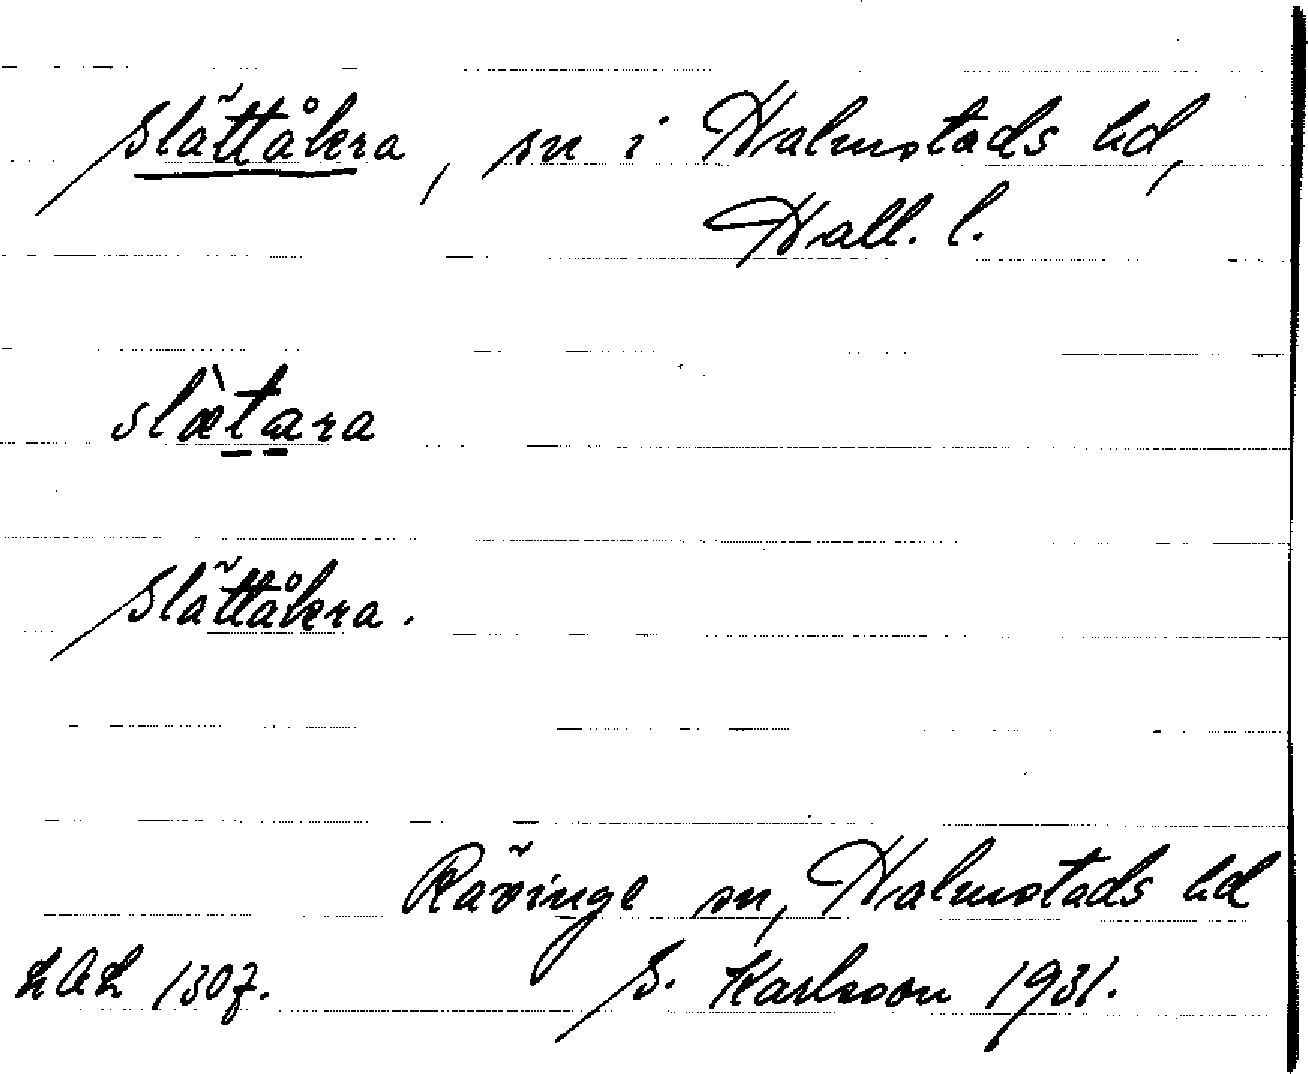 Slättåkra, sn i Halmstads hd,
Hall. l.
slæ̀tara
Slättåkra.
Rävinge sn, Halmstads hd
LAL 1307. S. Karlsson 1931.